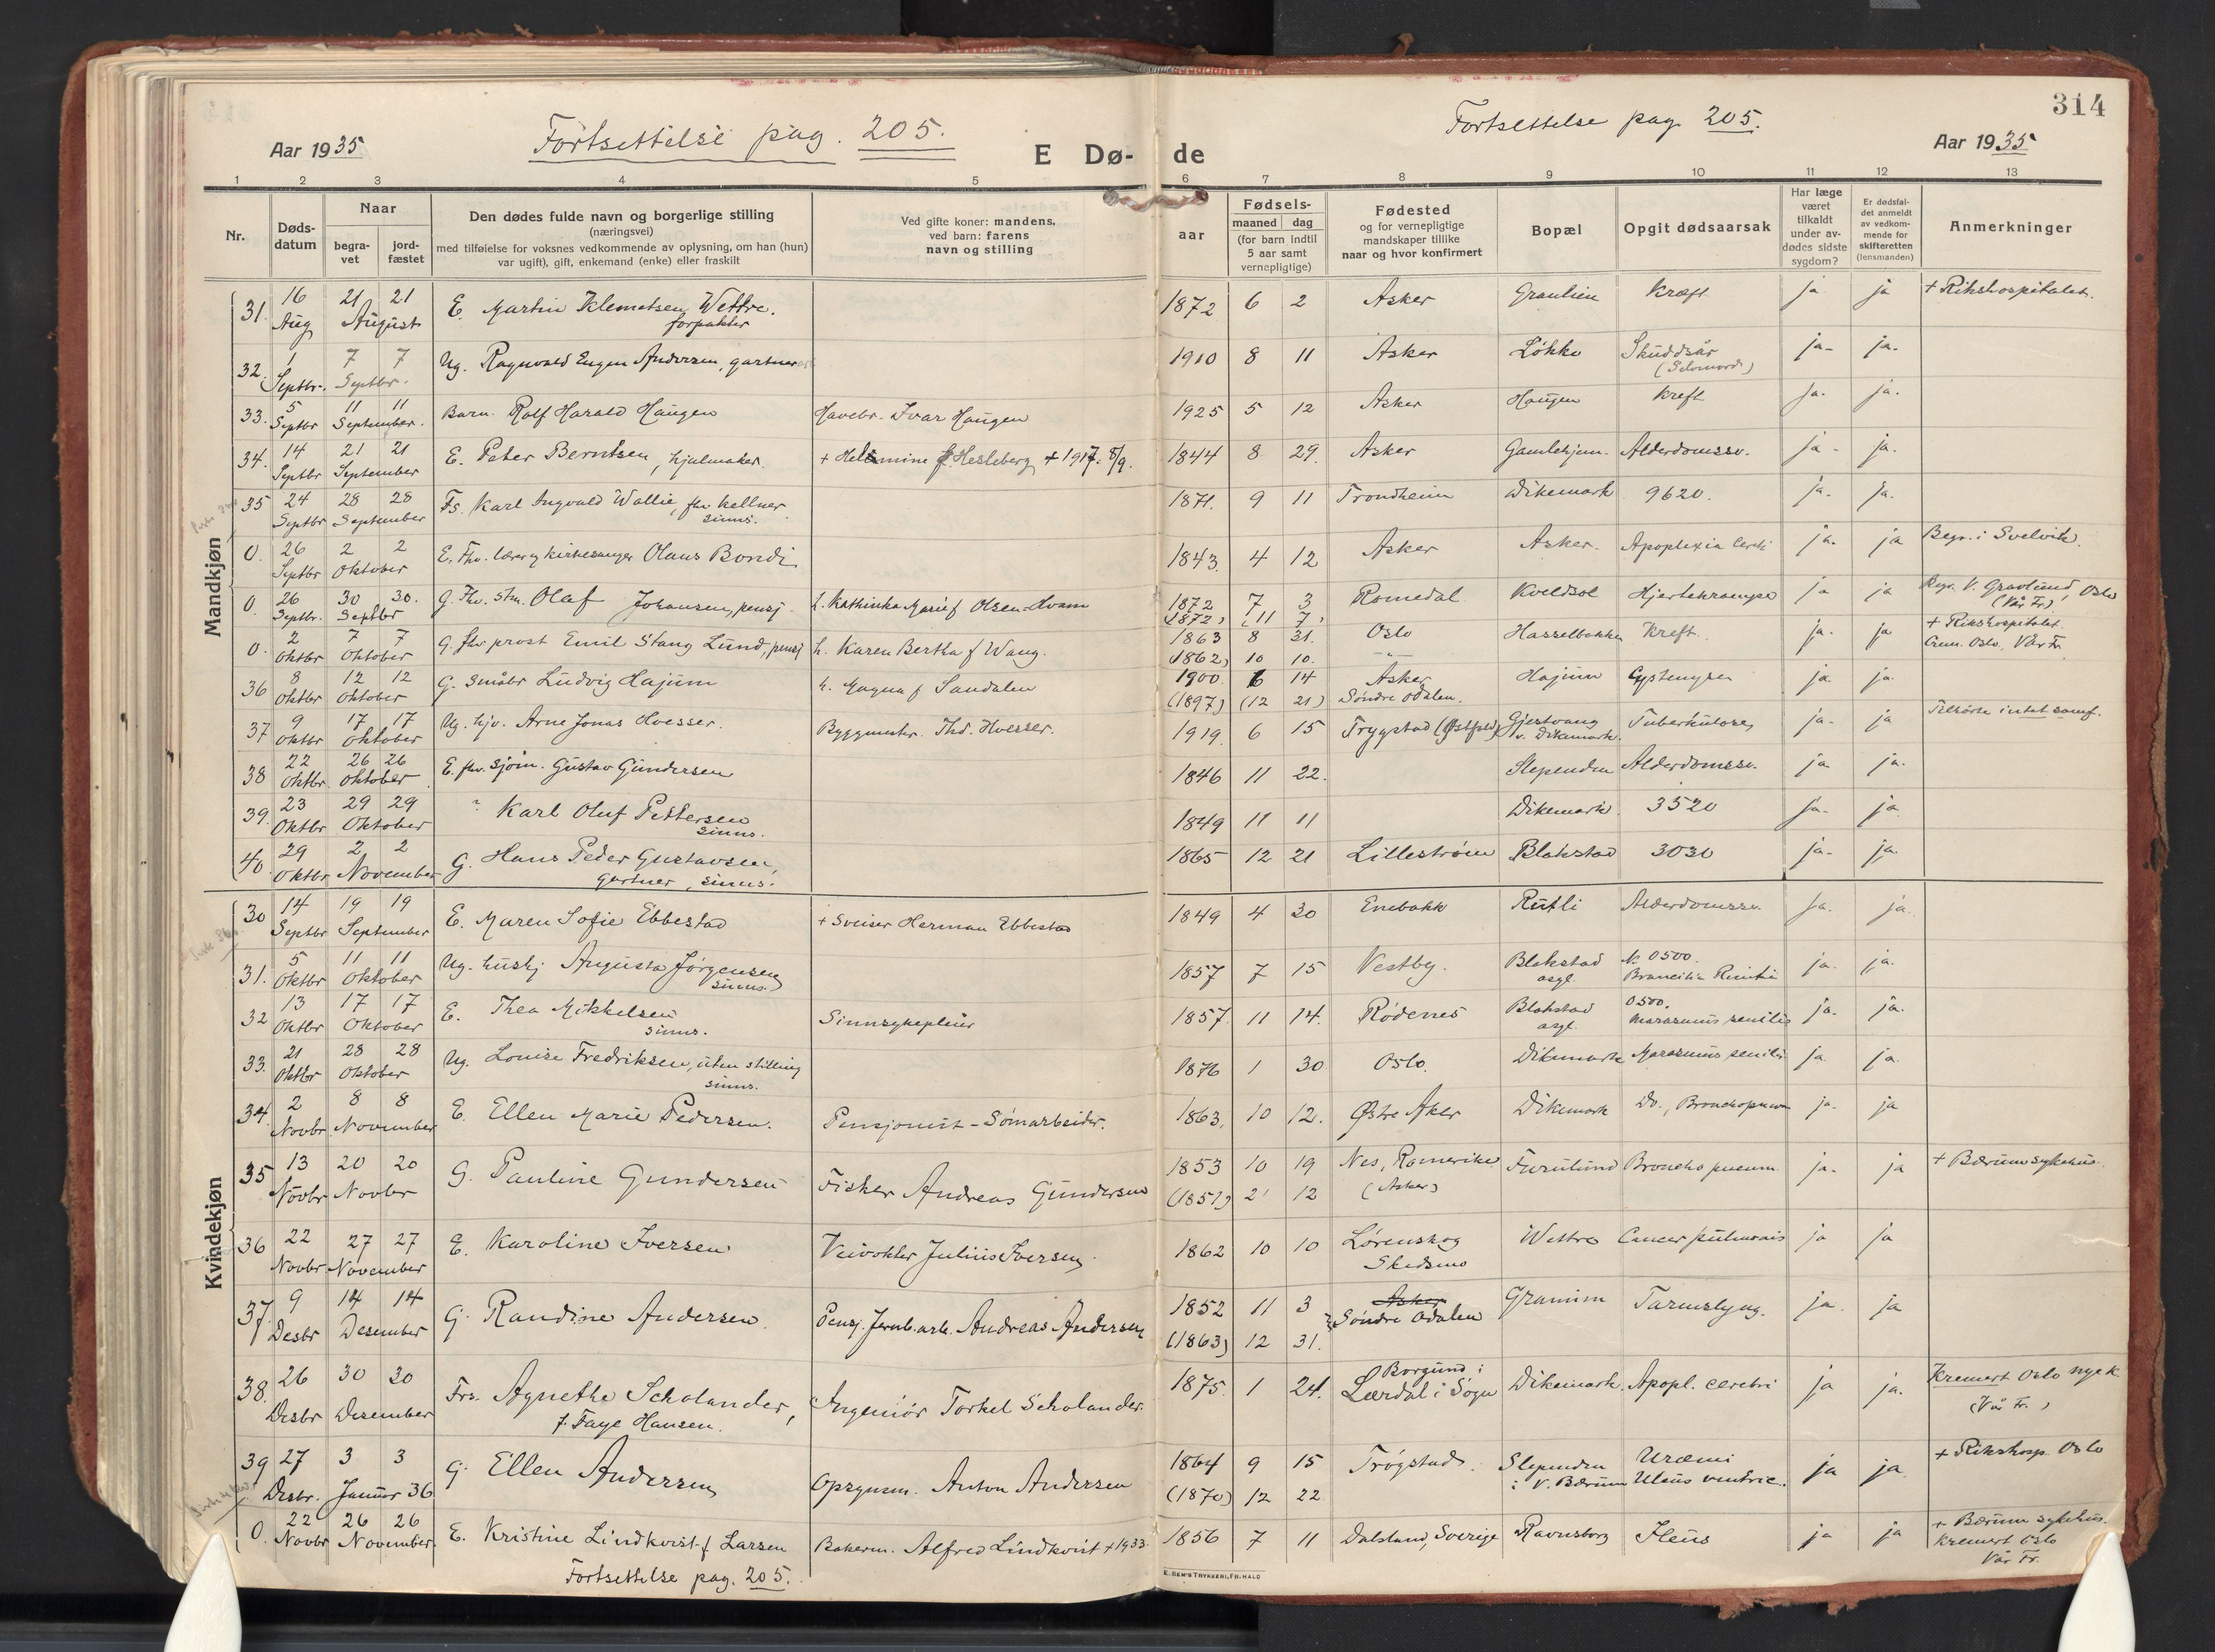 314
Aar 1935 Fortsettelse pag. 205. E Dø- de Fortsettelse pag. 205. Aar 1935
1 2 3 4 5 6 7 8 9 10 11 12 13
Nr.
Døds-
datum
Naar
begra-
vet
jord-
fæstet
Den dødes fulde navn og borgerlige stilling
(næringsvei)
med tilføielse for voksnes vedkommende av oplysning, om han (hun)
var ugift), gift, enkemand (enke) eller fraskilt
Ved gifte koner: mandens,
ved barn: farens
navn og stilling
Fødsels-
aar
maaned dag
(for barn indtil
5 aar samt
vernepligtige)
Fødested
og for vernepligtige
mandskaper tillike
naar og hvor konfirmert
Bopæl
Opgit dødsaarsak
Har læge
været
tilkaldt
under av-
dødes sidste
sygdom?
Er dødsfal-
det anmeldt
av vedkom-
mende for
skifteretten
(lensmanden)
Anmerkninger
Mandkjøn
16 21 21
31. Aug August E. Martin Klemetsen Wettre. 1872 6 2 Asker Kræft ja ja + Rikshospitalet.
forpakter
1 7 7
32. Septbr. Septbr. Ug. Ragnvald Eugen Andersen, gartner 1910 8 11 Asker Løkke Skuddsår ja- ja.
(Selvmord)
5 11 11
33. Septbr September. Barn. Rolf Harald Haugen Havebr. Ivar Haugen 1925 5 12 Asker Haugen Kreft ja. ja.
14 21 21
34. Septbr September E. Peter Berntsen, hjulmaker. + Helmine f. Hesleberg + 1917. 8/9. 1844 8 29. Asker Gamlehjem. Alderdomssv. ja- ja.
24 28 28
35 Septbr September Fs. Karl Ingvald Wallie, fhv. kellner 1871. 9 11 Trondheim Dikemark 9620. ja- ja.
sinns.
26 2 2
0. Septbr Oktober E. Fhv. lærer og kirkesanger Olaus Bondi 1843. 4 12 Asker Asker. Apoplexia Cerebri ja- ja Begr. i Svelvik.
26 30 30.
0. Septbr. Septbr G. Fhv. stm. Olaf Johansen, pensj. h. Kathinka Marie f Olsen-Hvam 1872 7 3 Romedal Kveldsol Hjertekrampe ja ja Begr. V. Gravlund, Oslo
(1872) (11 7) (Vår Fr.)
2 7 7
0. Oktbr Oktober G. fhv prost Emil Stang Lund, pensj h. Karen Bertha f Wang. 1863 8 31. Oslo Hasselbakken Kreft. ja- ja + Rikshospitalet.
(1862) 10 10. -"- Crem. Oslo. Vår Fr.
8 12 12
36 Oktbr Oktober G. Småbr Ludvig Hajum h. Magna f Sandalen 1900 6 14 Asker Hajum ja ja.
(1897) (12 21) Søndre Odalen.
9 17 17
37 Oktbr Oktober Ug. hjv. Arne Jonas Hvesser. Byggmstr. Thd. Hvesser. 1919. 6 15 Trygstad (Østfold) Gjestvang Tuberkulose, ja- ja Tilhørte intet samf.
v. Dikemark.
22 26 26
38 Oktbr. Oktober E. fhv. sjøm. Gustav Gundersen 1846 11 22. Slependen Alderdomssv. ja. ja.
23 29 29
39. Oktbr Oktober " Karl Oluf Pettersen 1849 11 11 Dikemark. 3520 ja- ja
sinns.
29 2 2
40. Oktbr November G. Hans Peder Gustavsen, 1865 12 21 Lillestrøm Blakstad 3030 ja- ja
gartner, sinns.
Kvindekjøn
14 19 19
30 Septbr September E. Maren Sofie Ebbestad + Sveiser Herman Ebbestad 1849 4 30 Enebakk Rutli Alderdomssv. ja. ja.
5 11 11
31. Oktbr Oktober Ug. hushj Augusta Jørgensen 1857 7 15 Vestby. Blakstad N. 0500. ja. ja.
sinns. asyl.
13 17 17
32 Oktbr Oktober E. Thea Mikkelsen Sinnsykepleier 1857 11 14. Rødenes Blakstad 0500. ja. ja.
sinns. asyl. Marasmus senilis
21 28 28
33. Oktbr Oktober Ug. Louise Fredriksen, uten stilling 1876 1 30 Oslo. Dikemark Marasmus senilis ja. ja.
sinns.
2 8 8
34. Novbr November E. Ellen Marie Pedersen. Pensjonist - Sømarbeider. 1863. 10 12. Østre Aker Dikemark Do., Bronchopneum ja- ja
13 20 20
35 Novbr Novbr G. Pauline Gundersen Fisker Andreas Gundersen 1853 10 19 Nes, Romerike Furulund Broncho pneum ja. ja + Bærum sykehus.
(1851) 2 12 (Asker)
22 27 27
36 Novbr November E. Karoline Iversen Veivokter Julius Iversen. 1862 10 10 Lørenskog Wettre Cancer pulmonis ja ja
Skedsmo
9 14 14
37. Desbr Desember G. Randine Andersen. Pensj. Jernb.arb. Andreas Andersen 1852 11 3 Asker Granum Tarmslyng. ja. ja
(1863) 12 31. Søndre Odalen
26 30 30
38. Desbr Desember Frs. Agnethe Scholander, Ingeniør Torkel Scholander. 1875 1 24. Borgund i Dikemark. Apopl. cerebri ja ja. Kremert Oslo nye k.
f. Faye Hansen. Lærdal i Sogn (Vår Fr.)
27 3 3
39 Desbr. Januar 36 G. Ellen Andersen Opsynsm. Anton Andersen 1864 9 15 Trøgstad. Slependen Uræmi ja ja + Rikshosp. Oslo
(1870) 12 22 i V. Bærum Ulcus ventric.
22 26 26
0. Novbr November. E. Kristine Lindkvist f Larsen Bakerm. Alfred Lindkvist + 1933. 1856 7 11 Dalsland, Sverige Ravnsborg Ileus ja ja + Bærum sykehus.
Kremert Oslo
Vår Fr.
Fortsettelse pag. 205.
E. SEM'S TRYKKERI, FR.HALD